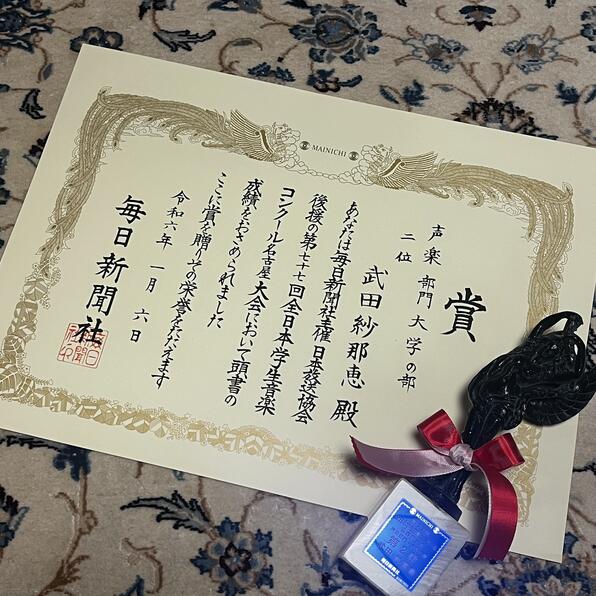 MAINICHI
賞
声楽部門大学の部
二位
武田紗那恵殿
あなたは毎日新聞社主催日本放送協会
後援の第七十七回全日本学生音楽
コンクール名古屋大会において頭書の
成績をおさめられました
ここに賞を贈りその栄誉をたたえます
令和六年一月六日
毎日新聞社
MAINICHI